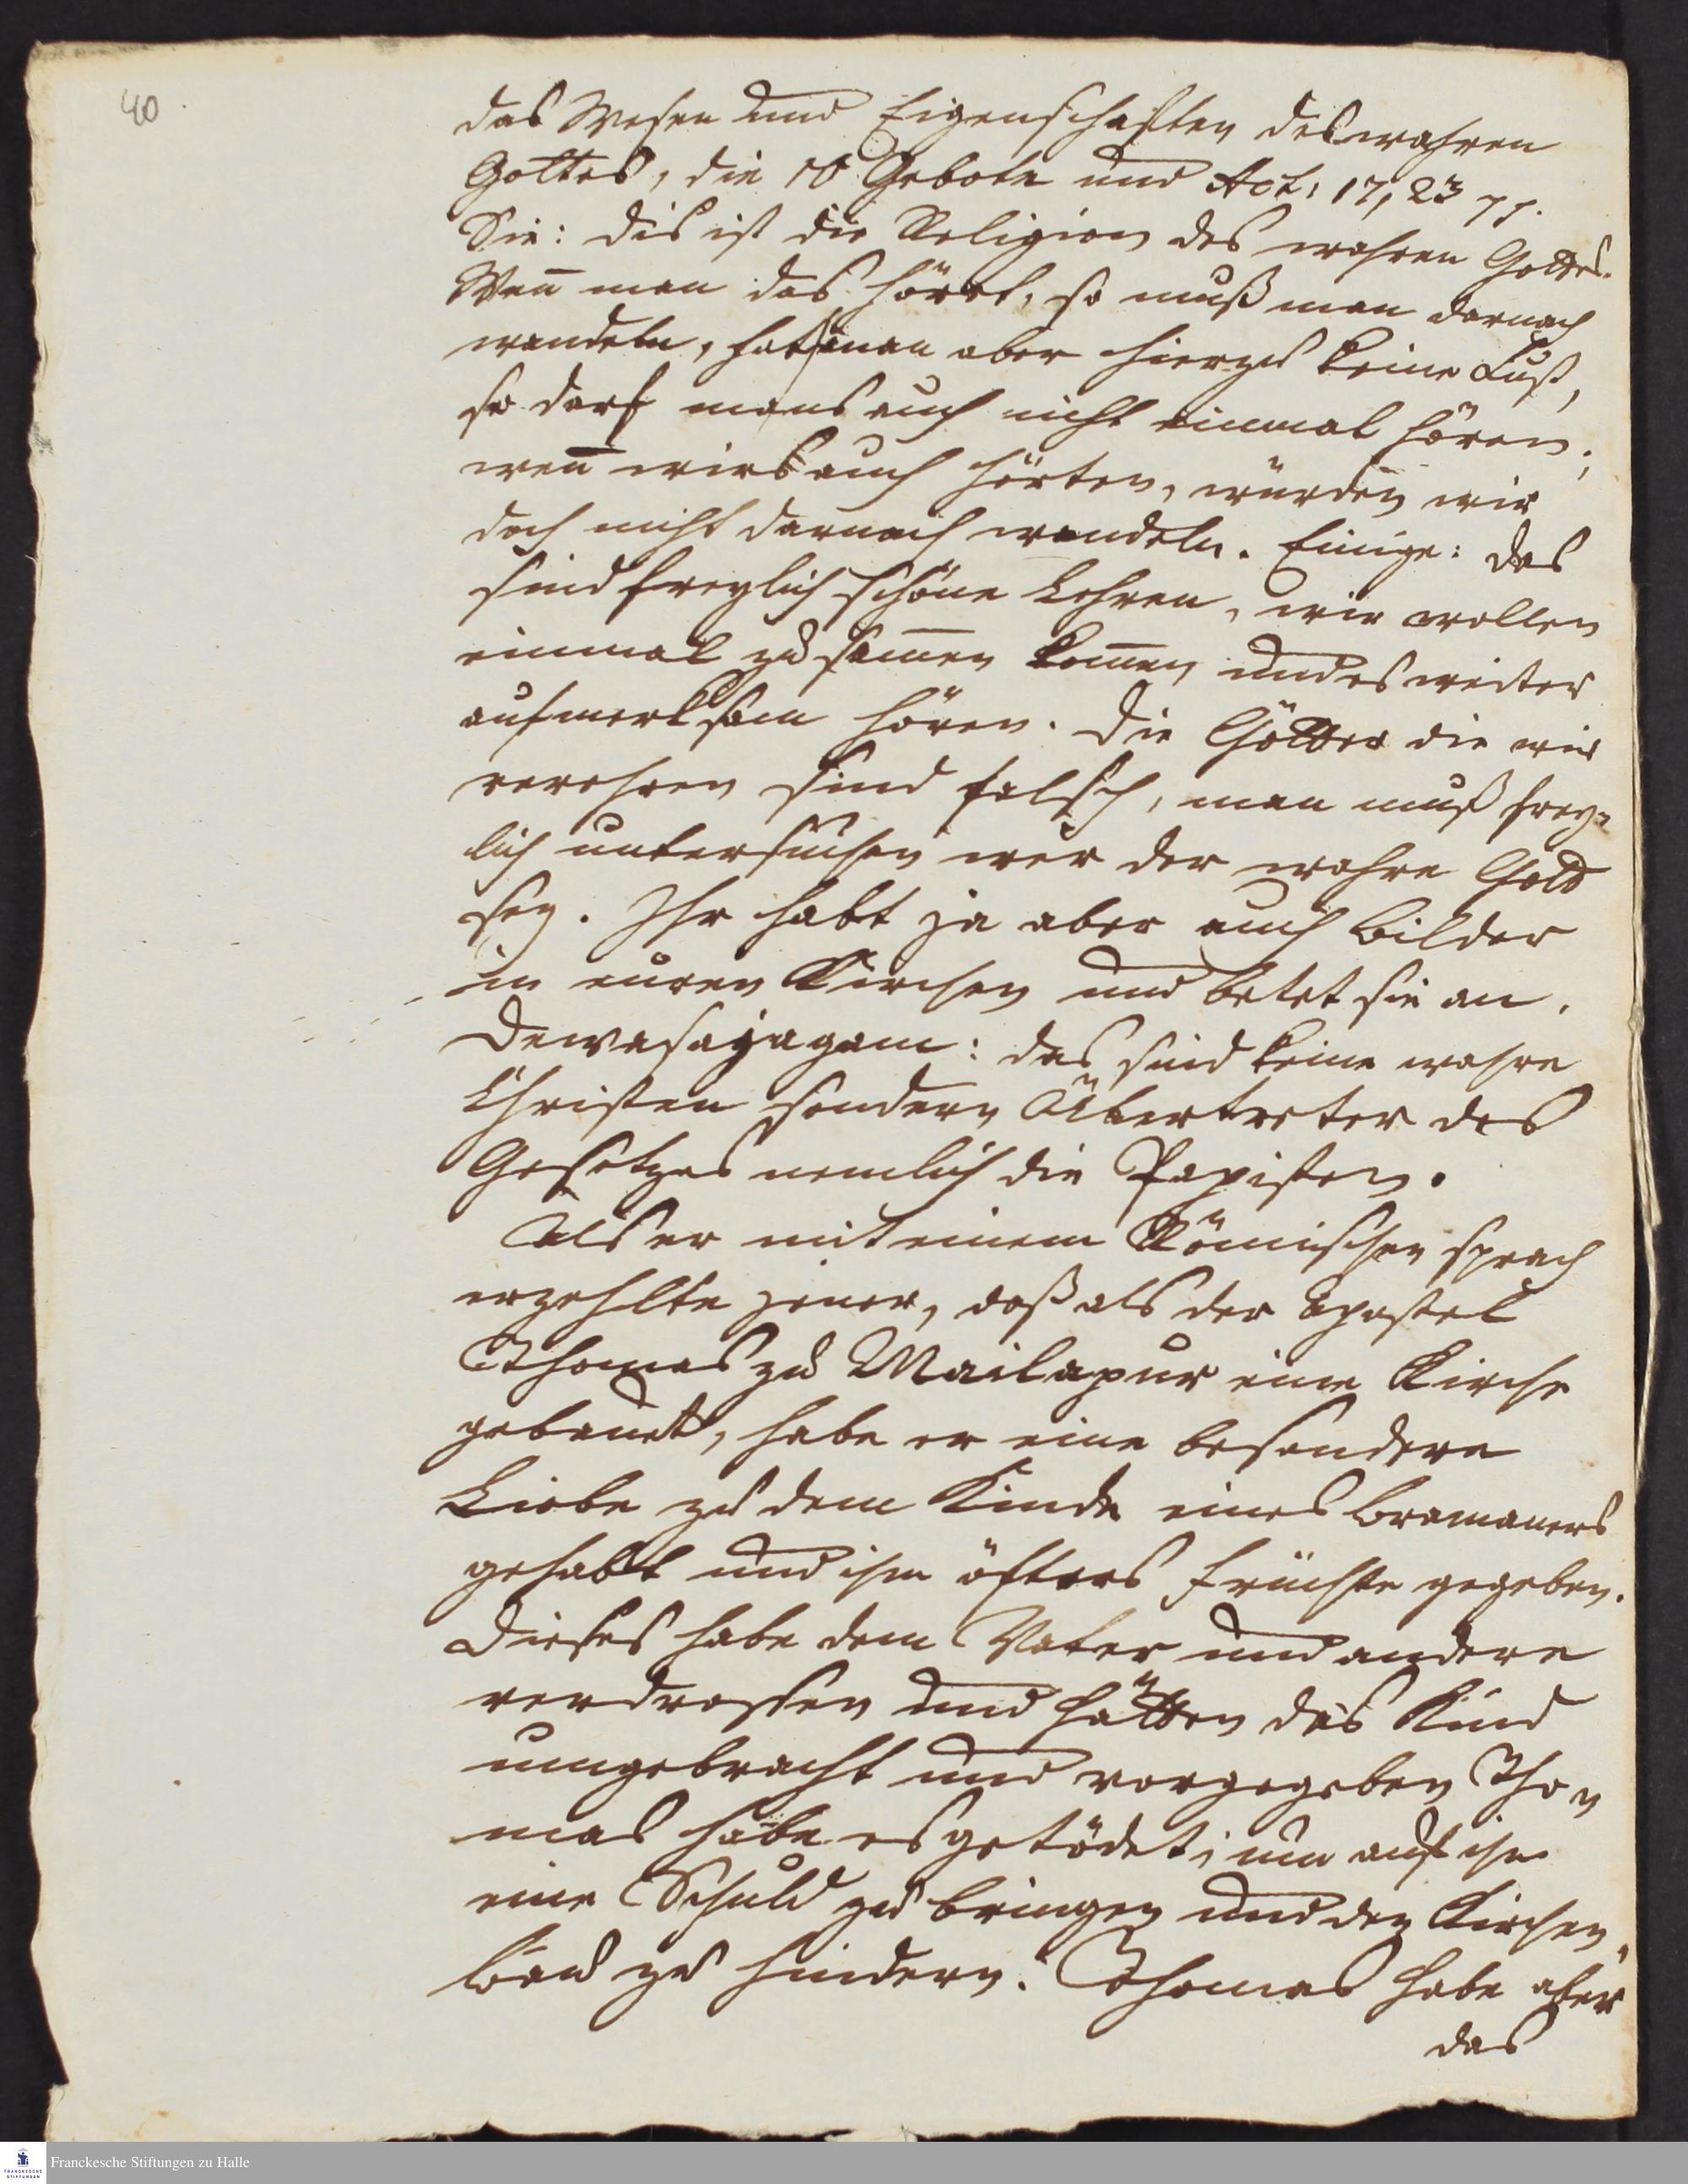 40
das Wesen und Eigenschaften des wahren
Gottes, die 10 Gebote und Act: 17, 23 pp.
Sie: dis ist die Religion des wahren Gottes.
Wen̄ man das höret, so muß man darnach
wandeln, hat man aber hierzu keine Lust,
so darf mans auch nicht einmal hören;
wen̄ wirs auch hörten, würden wir
doch nicht darnach wandeln. Einige: das
sind freylich schöne Lehren, wir wollen
einmal zusam̄en kom̄en und es weiter
aufmerksam hören. Die Götter die wir
verehren sind falsch, man muß frey-
lich untersuchen wer der wahre Gott
sey. Ihr habt ja aber auch Bilder
in euren Kirchen und betet sie an.
Dewasajagam: das sind keine wahre
Christen sondern Übertreter des
Gesetzes nemlich die Papisten.
Als er mit einem Römischen sprach
erzehlte jener, daß als der Apostel
Thomas zu Mailapur eine Kirche
gebauet, habe er eine besondere
Liebe zu dem Kinde eines Bramaners
gehabt und ihm öfters Früchte gegeben.
Dieses habe dem Vater und andere
verdrossen und hätten das Kind
umgebracht und vorgegeben Tho-
mas habe es getödet, um auf ihn
eine Schuld zu bringen und den Kirchen-
bau zu hindern. Thomas habe aber
das
Franckesche Stiftungen zu Halle